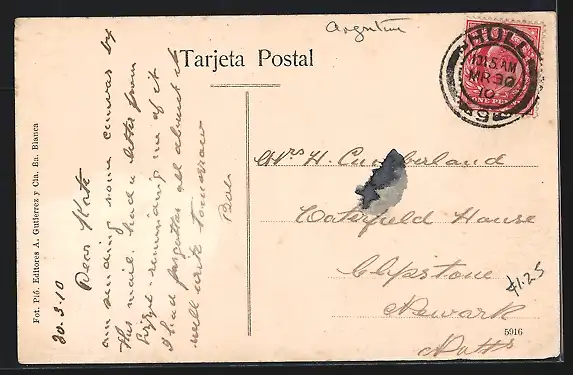 Argentine
Tarjeta Postal
HULL
10.15 AM
MR 30
10
ONE PENNY
Fot. Pió. Editores A. Gutierrez y Cia. Ba. Blanca
30.3.10
Dear Kate
am sending some canvas by
this mail. had a letter from
reminding me of it
I had forgotten all about it
will write tomorrow
Mrs H. Cumberland
Caterfield House
Clipstone
Newark
Notts
$1.25
5916